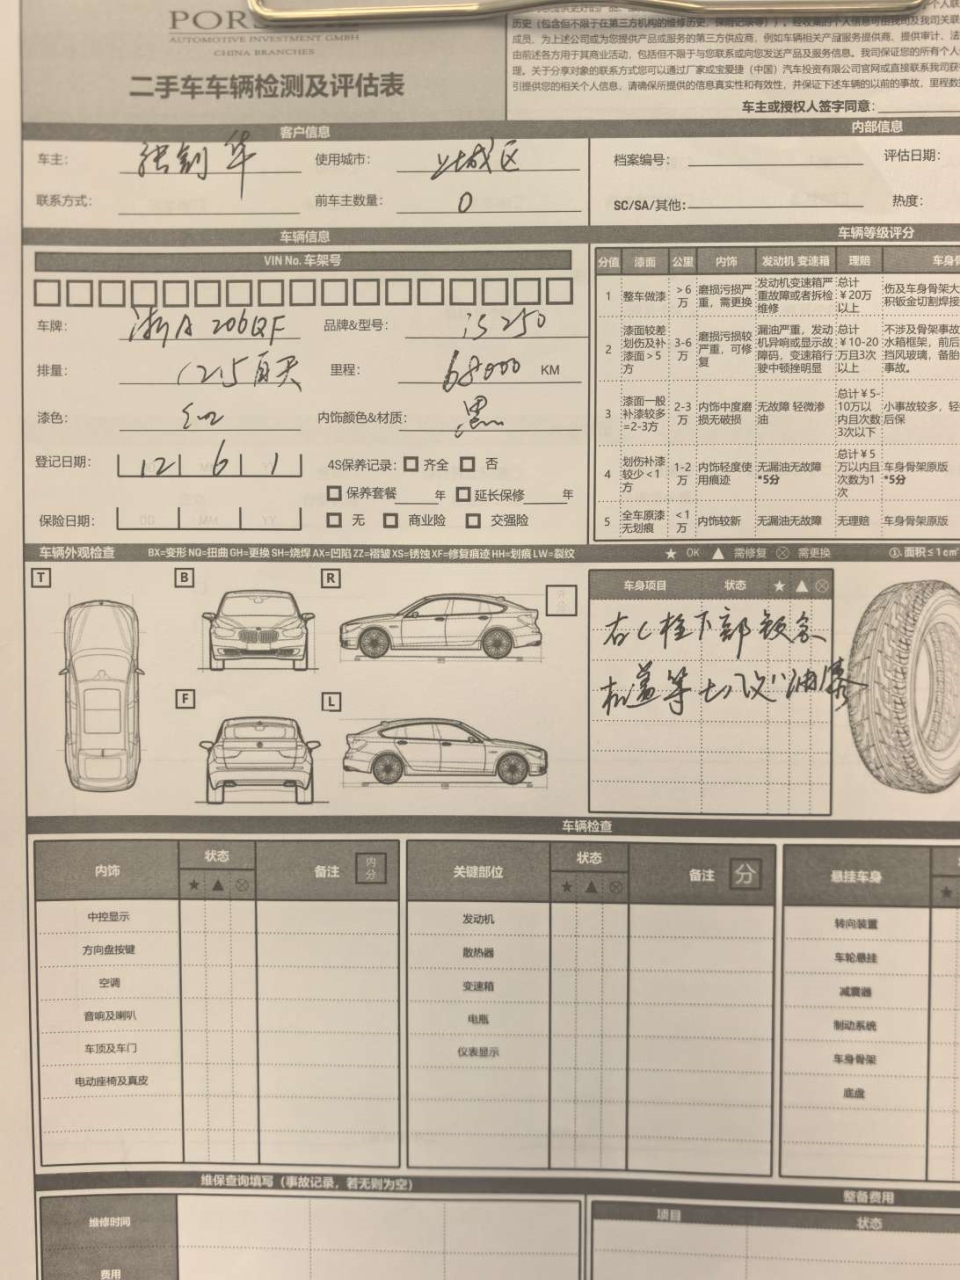 PORS
AUTOMOTIVE INVESTMENT GMBH
CHINA BRANCHES
二手车车辆检测及评估表
历史（包含但不限于在第三方机构的维修历史，保险记录等）
成员，为上述公司或为您提供产品或服务的第三方供应商，例如车辆相关产品服务提供商、提供审计、法
由前述各方用于其商业活动，包括但不限于与您联系或向您发送产品及服务信息。我司保证您的所有个人
理。关于分享对象的联系方式您可以通过厂家或宝爱捷（中国）汽车投资有限公司官网或直接联系我司获
引提供您的相关个人信息，请确保所提供的信息真实性和有效性，并保证下述车辆的以前的事故，里程数
车主或授权人签字同意：
客户信息
内部信息
车主： 张剑华 使用城市： 上城区
档案编号： 评估日期：
联系方式： 前车主数量： 0
SC/SA/其他： 热度：
车辆信息
车辆等级评分
VIN No. 车架号
车牌： 浙A 206QF 品牌&型号： is 250
排量： 里程： 68000 KM
漆色： 红 内饰颜色&材质： 黑
登记日期： 12 6 1 4S保养记录： 齐全 否
保养套餐 年 延长保修 年
保险日期： 无 商业险 交强险
分值 漆面 公里 内饰 发动机 变速箱 理赔 车身骨
1 整车做漆 >6万 磨损污损严重，需更换 发动机变速箱严重故障或者拆检维修 总计￥20万以上 伤及车身骨架大 积钣金切割焊接
2 漆面较差 划伤及补漆面>5方 3-6万 磨损污损较严重，可修复 漏油严重，发动机异响或显示故障码，变速箱行驶中顿挫明显 总计￥10-20万且3次以上 不涉及骨架事故 水箱框架，前后 挡风玻璃，备胎 事故。
3 漆面一般 补漆较多=2-3方 2-3万 内饰中度磨损无破损 无故障 轻微渗油 总计￥5-10万以内且次数3次以下 小事故较多，轻 后保
4 划伤补漆较少<1方 1-2万 内饰轻度使用痕迹 无漏油无故障 *5分 总计￥5万以内且次数为1次 车身骨架原版 *5分
5 全车原漆无划痕 <1万 内饰较新 无漏油无故障 无理赔 车身骨架原版
车辆外观检查 BX=变形 NQ=扭曲 GH=更换 SH=烧焊 AX=凹陷 ZZ=褶皱 XS=锈蚀 XF=修复痕迹 HH=划痕 LW=裂纹 ★ OK ▲ 需修复 ⊗ 需更换 ①.面积≤1cm²
T B R
F L
车身项目 状态 ★ ▲ ⊗
右C柱下部钣金
机盖等
车辆检查
内饰 状态 ★ ▲ ⊗ 备注 内分
关键部位 状态 ★ ▲ ⊗ 备注 分
悬挂车身 ★
中控显示 发动机 转向装置
方向盘按键 散热器 车轮悬挂
空调 变速箱 减震器
音响及喇叭 电瓶 制动系统
车顶及车门 仪表显示 车身骨架
电动座椅及真皮 底盘
维保查询填写（事故记录，若无则为空）
整备费用
维修时间 项目 状态
费用